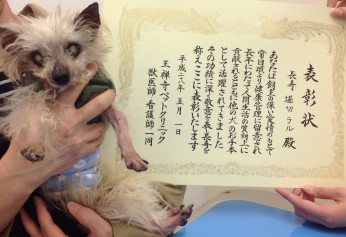 表彰状
長寿 堀切 ラル 殿
あなたは飼主の深い愛情のもとで
常日頃より健康管理に留意され
長年にわたって飼生活の質向上に
貢献されるとともに他の犬のお手本
として活躍されてきました
その功績に深く敬意を表し長寿を
称えここに表彰いたします
平成二八年 五月 一日
王禅寺ペットクリニック
獣医師 看護師一同